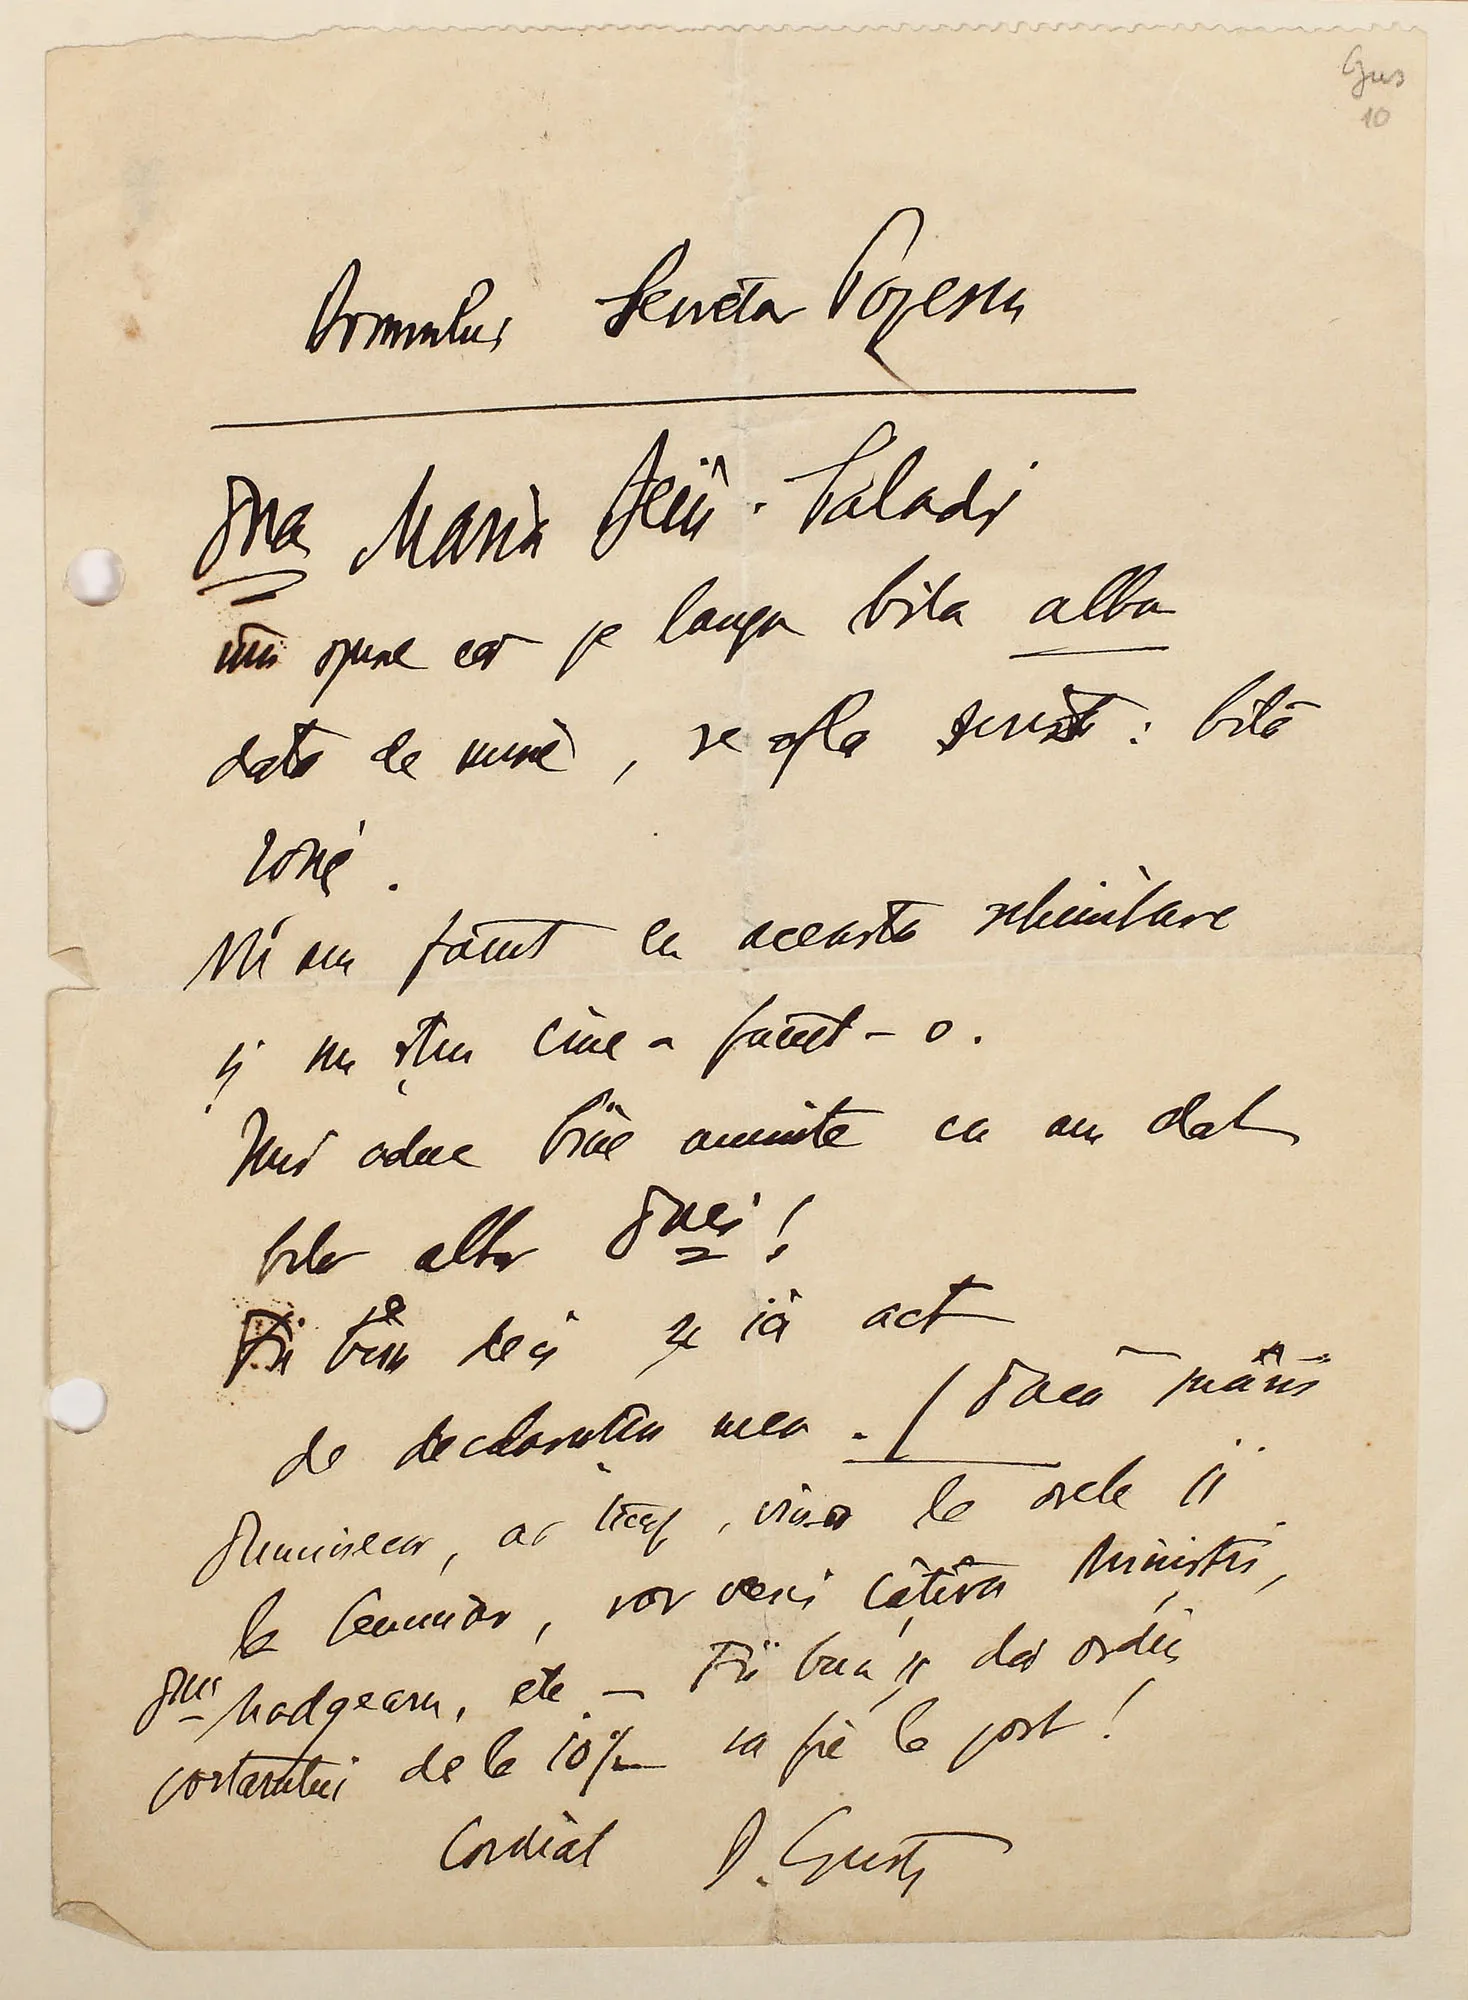 Gus
10
Domnului Secretar Popescu
Dna Maria
îmi spune că pe langa bila alba
data de mine, se afla scrisă : bilă
roșie .
N'am făcut eu aceasta schimbare
și nu știu cine a făcut-o .
Îmi aduc bine aminte ca am dat
bila alba Dnei !
Fii bun deci și ia act
de declarația mea . / Dacă mâine
Dumineca, ar , la orele 11
la Seminar, vor veni câțiva Miniștri,
Dnii Madgearu, etc – Fii bun și dă ordin
portarului de la 10½ sa fie la post !
Cordial D. Gusti